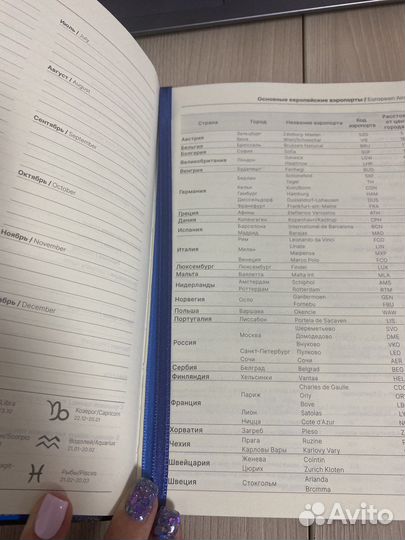 Июль / July
Август / August
Сентябрь / September
Октябрь / October
Ноябрь / November
Декабрь / December
Libra
Козерог/Capricorn
22.12-20.01
Водолей/Aquarius
21.01-20.02
Рыбы/Pisces
21.02-20.03
Основные европейские аэропорты / European Air
Страна Город Название аэропорта Код аэропорта Расстоя от цен города
Австрия Зальцбург
Вена
Бельгия Брюссель Brussels National BRU
Болгария София Sofia SOF
Великобритания Лондон Gatwick LGW
Heathrow LHR
Венгрия Будапешт Ferihegy BUD
Германия Берлин Schonefeld SXF
Tegel TH
Кельн Koln/Bonn CGN
Гамбург Hamburg HAM
Дюссельдорф Dusseldorf-Lohausen DUS
Франкфурт Frankfurt-am-Main FRA
Греция Афины Eleftherios Venizelos ATH
Дания Копенгаген Kopenhavn/Kastrup CPH
Испания Барселона International de Barcelona BCN
Мадрид Barajas MAD
Италия Рим Leonardo da Vinci FCO
Милан Linate LIN
Malpensa MXP
Венеция Marco Polo FCO
Люксембург Люксембург Findel LUX
Мальта Валлетта Malta Int. MLA
Нидерланды Амстердам Schiphol AMS
Роттердам Rotterdam RTM
Норвегия Осло Gardermoen GEN
Fornebu FBU
Польша Варшава Okencie WAW
Португалия Лиссабон Portela de Sacaven LIS
Россия Москва Шереметьево SVO
Домодедово DME
Внуково VKO
Санкт-Петербург Пулково LED
Сочи Сочи AER
Сербия Белград Belgrad BEG
Финляндия Хельсинки Vantaa HEL
Франция Париж Charles de Gaulle CDG
Orly OR
Bove
Лион Satolas LY
Ницца Cote d'Azur
Хорватия Загреб Pleso
Чехия Прага Ruzine
Карловы Вары Karlovy Vary
Швейцария Женева Cointin
Цюрих Zurich Kloten
Швеция Стокгольм Arlanda
Bromma
Avito